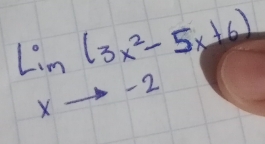 Lim (3x² - 5x + 6)
x → -2